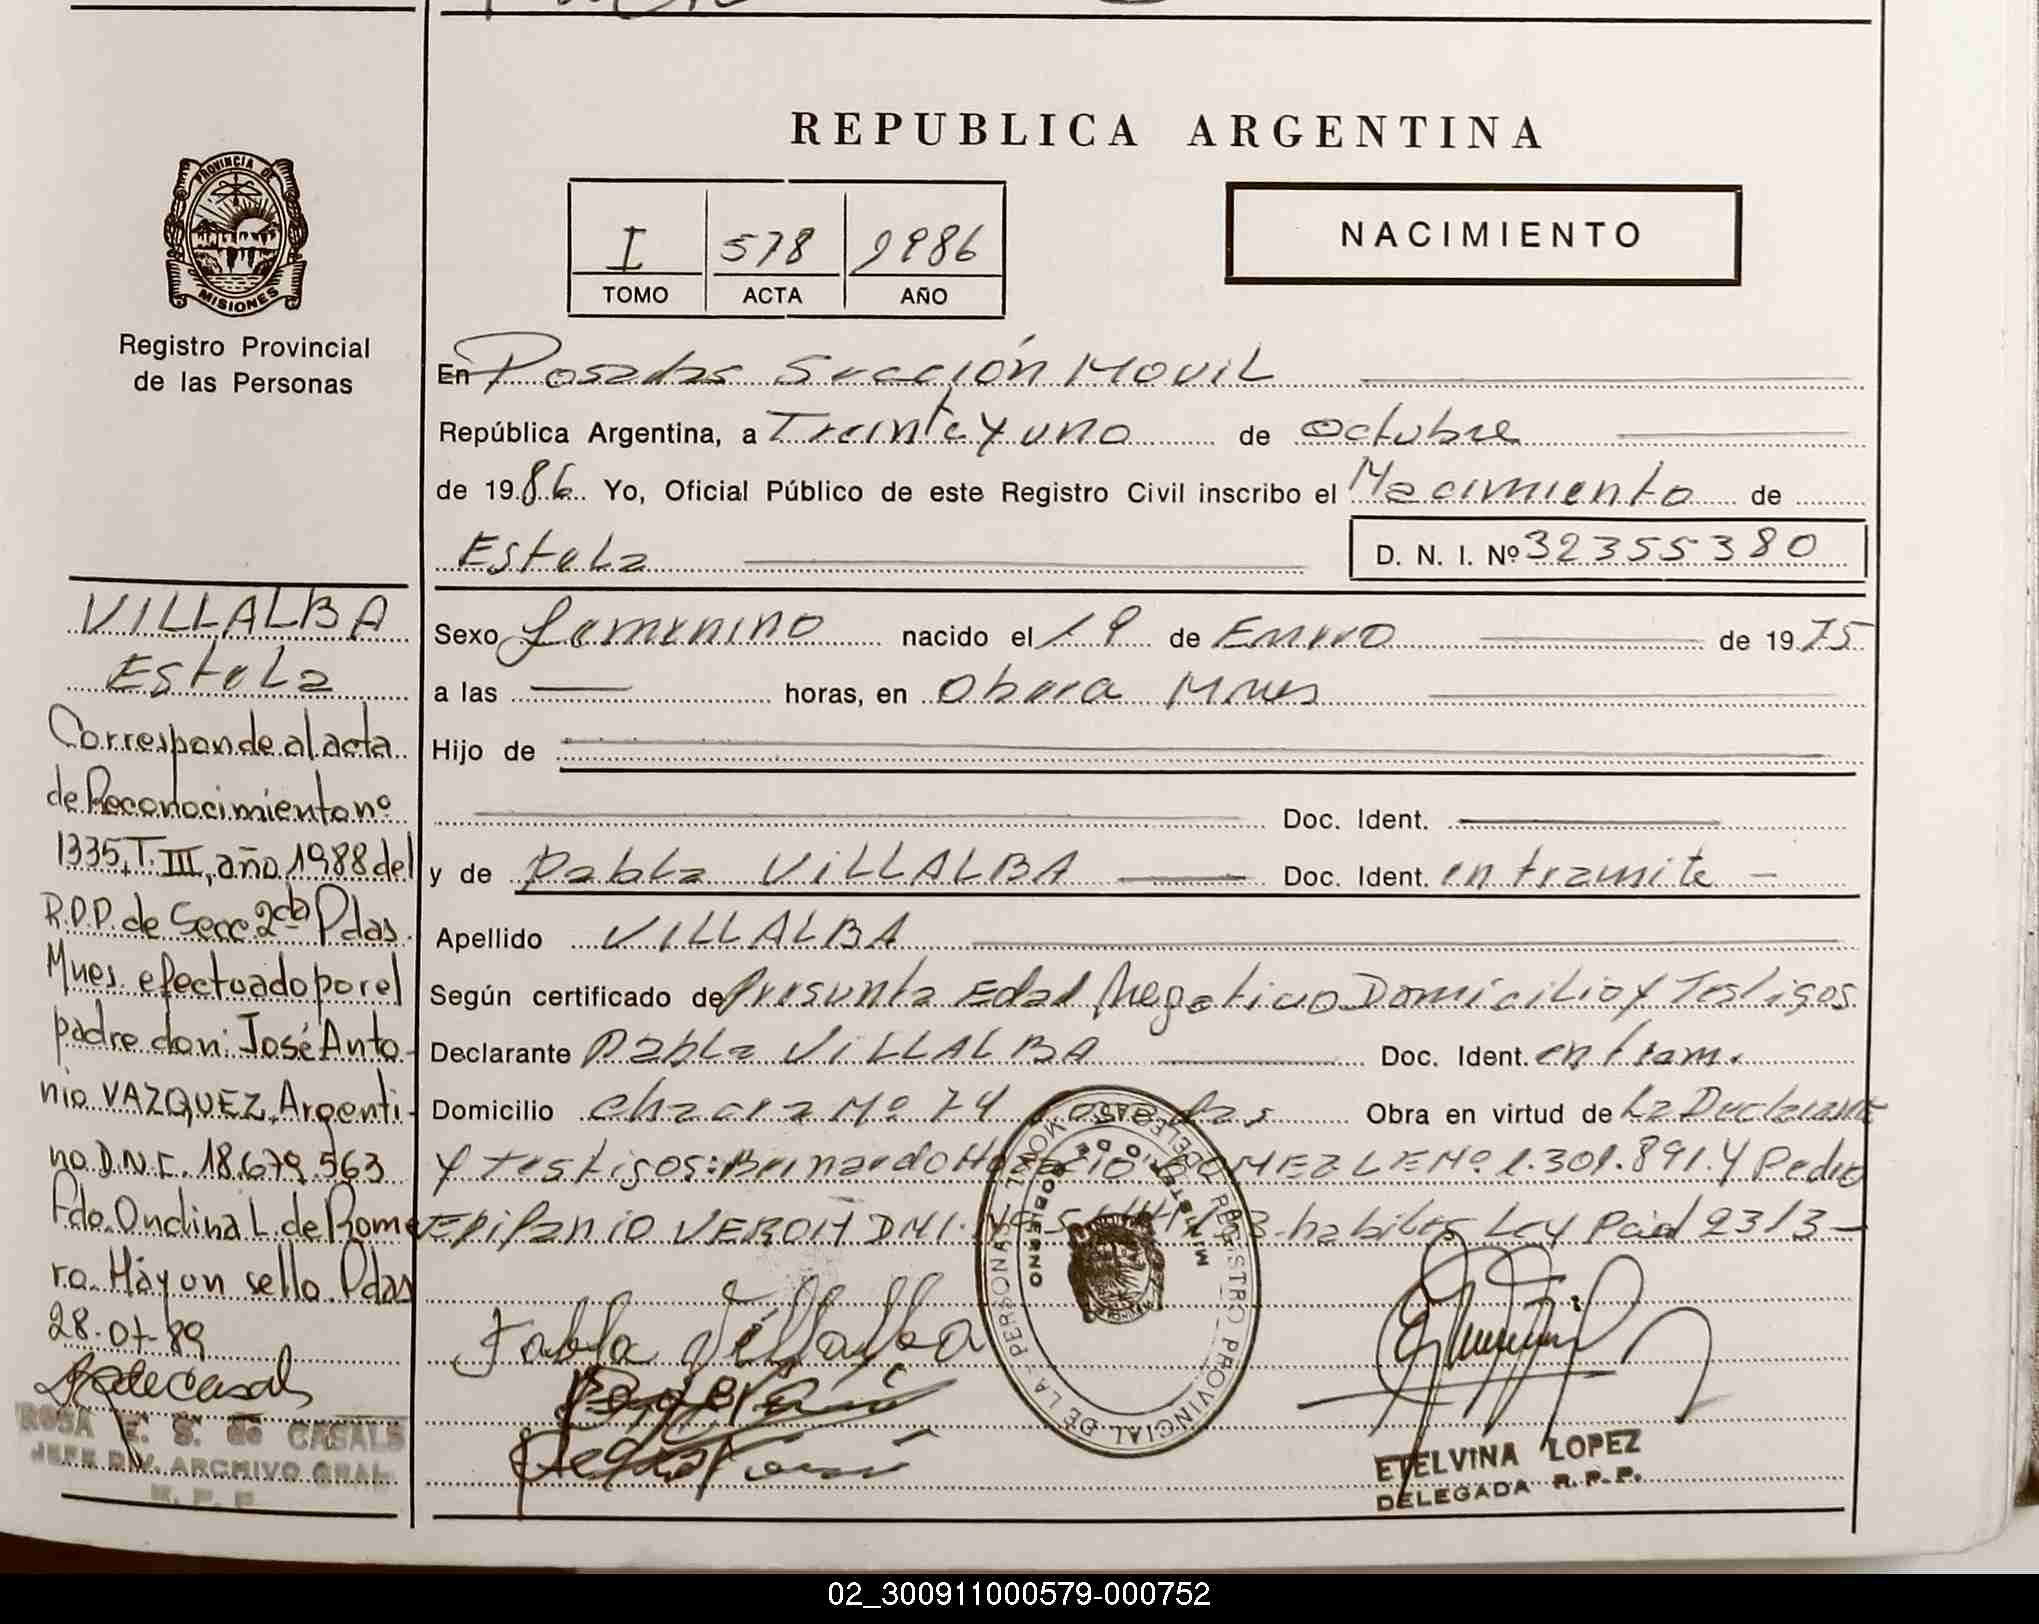 REPUBLICA ARGENTINA
PROVINCIA DE
MISIONES
Registro Provincial
de las Personas
I 578 1986
TOMO ACTA AÑO
NACIMIENTO
En Posadas Sección Movil
República Argentina, a Treinta y uno de octubre
de 1986 Yo, Oficial Público de este Registro Civil inscribo el Nacimiento de
Estela D. N. I. Nº 32355380
Sexo Femenino nacido el 19 de Enero de 1975
a las horas, en Obera Mnes
Hijo de
Doc. Ident.
y de Pabla VILLALBA Doc. Ident. en tramite
Apellido VILLALBA
Según certificado de Presunta Edad Negativo Domicilio y Testigos
Declarante Pabla VILLALBA Doc. Ident. en tram.
Domicilio chacra Nº 74 Posadas Obra en virtud de La Declarante
y testigos: Bernardo GOMEZ LE Nº 1.301.891. y Pedro
Epifanio VERON DNI. habiles Ley 2313
Pabla Villalba
REGISTRO PROVINCIAL DE LAS PERSONAS
MINISTERIO DE GOBIERNO
ETELVINA LOPEZ
DELEGADA R.P.P.
VILLALBA
Estela
Corresponde al acta
de Reconocimiento nº
1335, T. III, año 1988 del
R.P.P. de Secc 2da Pdas.
Mnes. efectuado por el
padre don: José Anto-
nio VAZQUEZ, Argenti-
no D.N.I. 18.679.563
Fdo. Ondina L. de Rome
ro. Hay un sello. Pdas
28-07-89
ROSA E. S. de CASALS
JEFE DIV. ARCHIVO GRAL.
R. P. P.
02_300911000579-000752